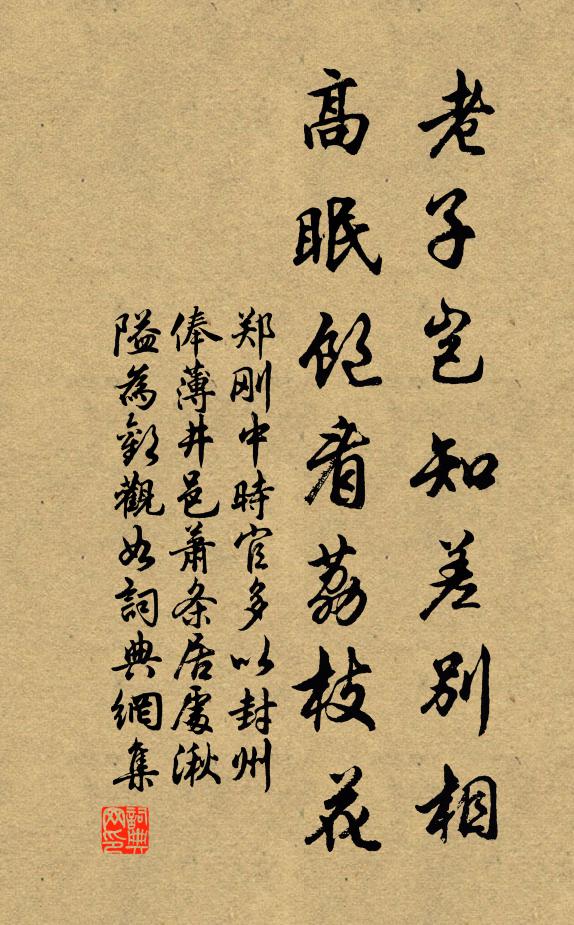 老子岂知差别相
高眠饱看荔枝花
郑刚中时官多以封州
俸薄井邑萧条居处湫
隘為歎觀如詞典網集
詞典网印